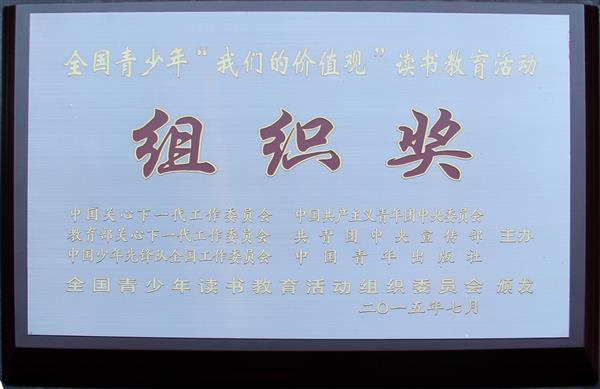 全国青少年“我们的价值观”读书教育活动
组织奖
中国关心下一代工作委员会 中国共产主义青年团中央委员会
教育部关心下一代工作委员会 共青团中央宣传部 主办
中国少年先锋队全国工作委员会 中国青年出版社
全国青少年读书教育活动组织委员会 颁发
二〇一五年七月